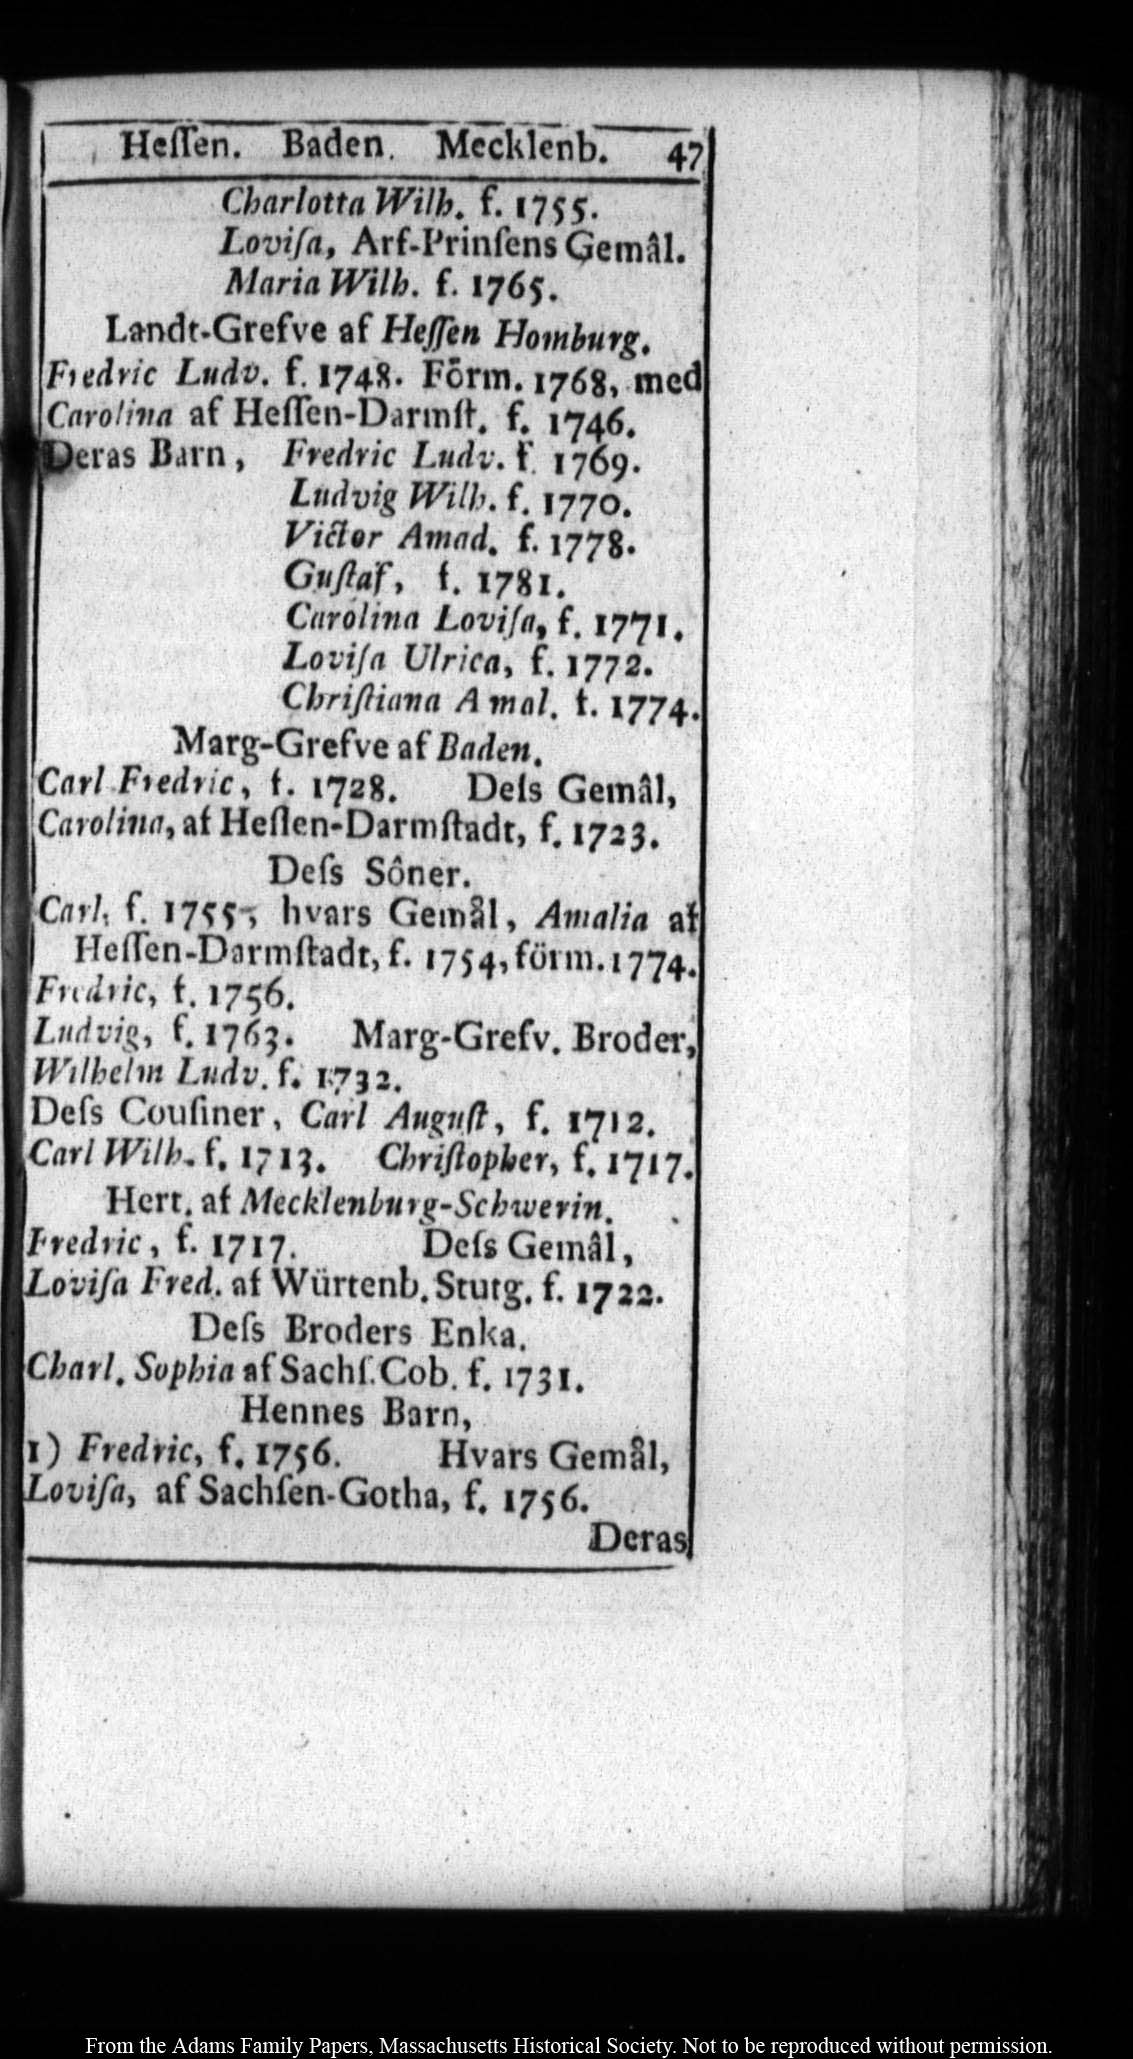 Heſſen. Baden. Mecklenb. 47
Charlotta Wilh. f. 1755.
Loviſa, Arf-Prinſens Gemâl.
Maria Wilh. f. 1765.
Landt-Grefve af Heſſen Homburg.
Fredric Ludv. f. 1748. Förm. 1768, med
Carolina af Heſſen-Darmſt. f. 1746.
Deras Barn, Fredric Ludv. f. 1769.
Ludvig Wilh. f. 1770.
Victor Amad. f. 1778.
Guſtaf, f. 1781.
Carolina Loviſa, f. 1771.
Loviſa Ulrica, f. 1772.
Chriſtiana Amal. f. 1774.
Marg-Grefve af Baden.
Carl Fredric, f. 1728. Deſs Gemâl,
Carolina, af Heſſen-Darmſtadt, f. 1723.
Deſs Sôner.
Carl, f. 1755, hvars Gemål, Amalia af
Heſſen-Darmſtadt, f. 1754, förm. 1774.
Fredric, f. 1756.
Ludvig, f. 1763. Marg-Grefv. Broder,
Wilhelm Ludv. f. 1732.
Deſs Couſiner, Carl Auguſt, f. 1712.
Carl Wilh. f. 1713. Chriſtopher, f. 1717.
Hert. af Mecklenburg-Schwerin.
Fredric, f. 1717. Deſs Gemâl,
Loviſa Fred. af Würtenb. Stutg. f. 1722.
Deſs Broders Enka.
Charl. Sophia af Sachſ. Cob. f. 1731.
Hennes Barn,
1) Fredric, f. 1756. Hvars Gemål,
Loviſa, af Sachſen-Gotha, f. 1756.
Deras
From the Adams Family Papers, Massachusetts Historical Society. Not to be reproduced without permission.